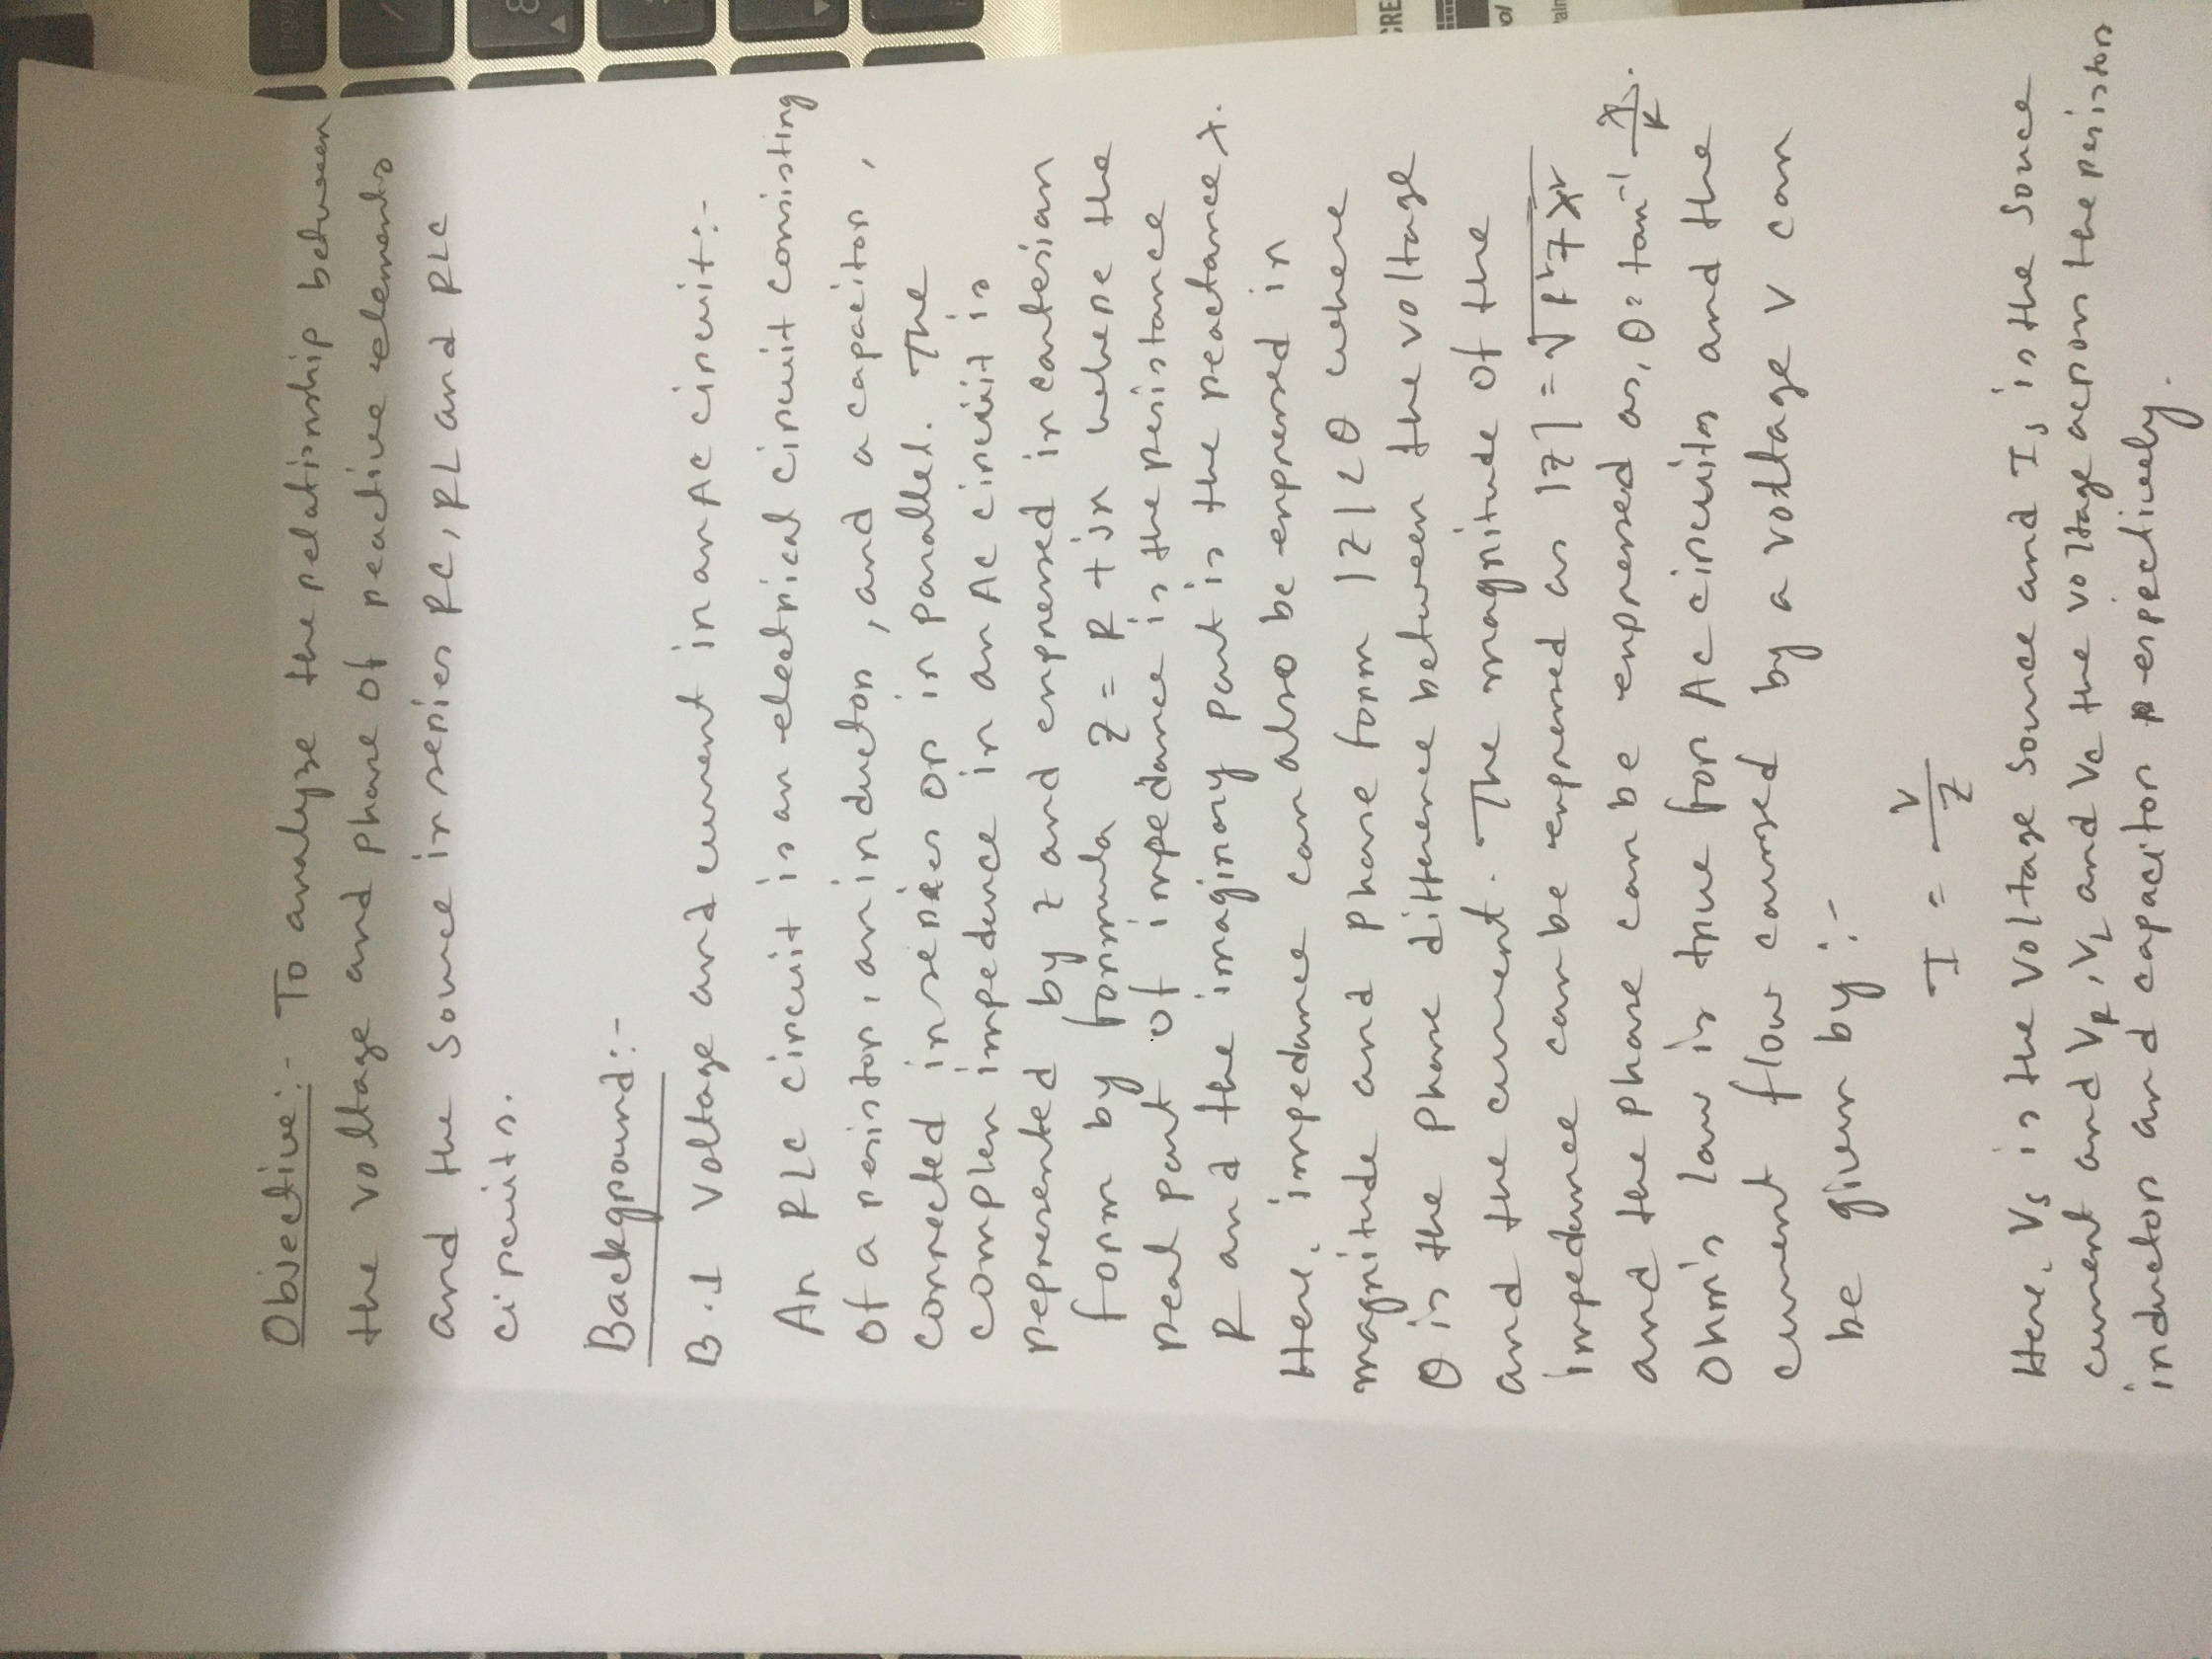 Objective:- To analyze the relationship between
the voltage and phase of reactive elements
and the source in series RC, RL and RLC
circuits.
Background:-
B.1 Voltage and current in an AC circuit:-
An RLC circuit is an electrical circuit consisting
of a resistor, an inductor, and a capacitor,
connected in series or in parallel. The
complex impedence in an AC circuit is
represented by Z and expressed in cartesian
form by formula Z = R + jx where the
real part of impedance is the resistance
R and the imaginary part is the reactance X.
Here, impedance can also be expressed in
magnitude and phase form |Z|∠θ where
θ is the phase difference between the voltage
and the current. The magnitude of the
impedance can be expressed as |Z| = √R²+X²
and the phase can be expressed as, θ = tan⁻¹ X/R.
Ohm's law is true for AC circuits and the
current flow caused by a voltage V can
be given by :-
I = V/Z
Here, Vs is the voltage source and Is is the source
current and VR, VL and Vc the voltage across the resistor
inductor and capacitor respectively.